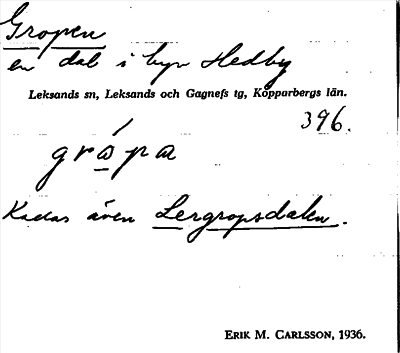 Gropen
en dal i byn Hedby
Leksands sn, Leksands och Gagnefs tg, Kopparbergs län.
396.
gråpa
Kallas även Lergropsdalen.
ERIK M. CARLSSON, 1936.